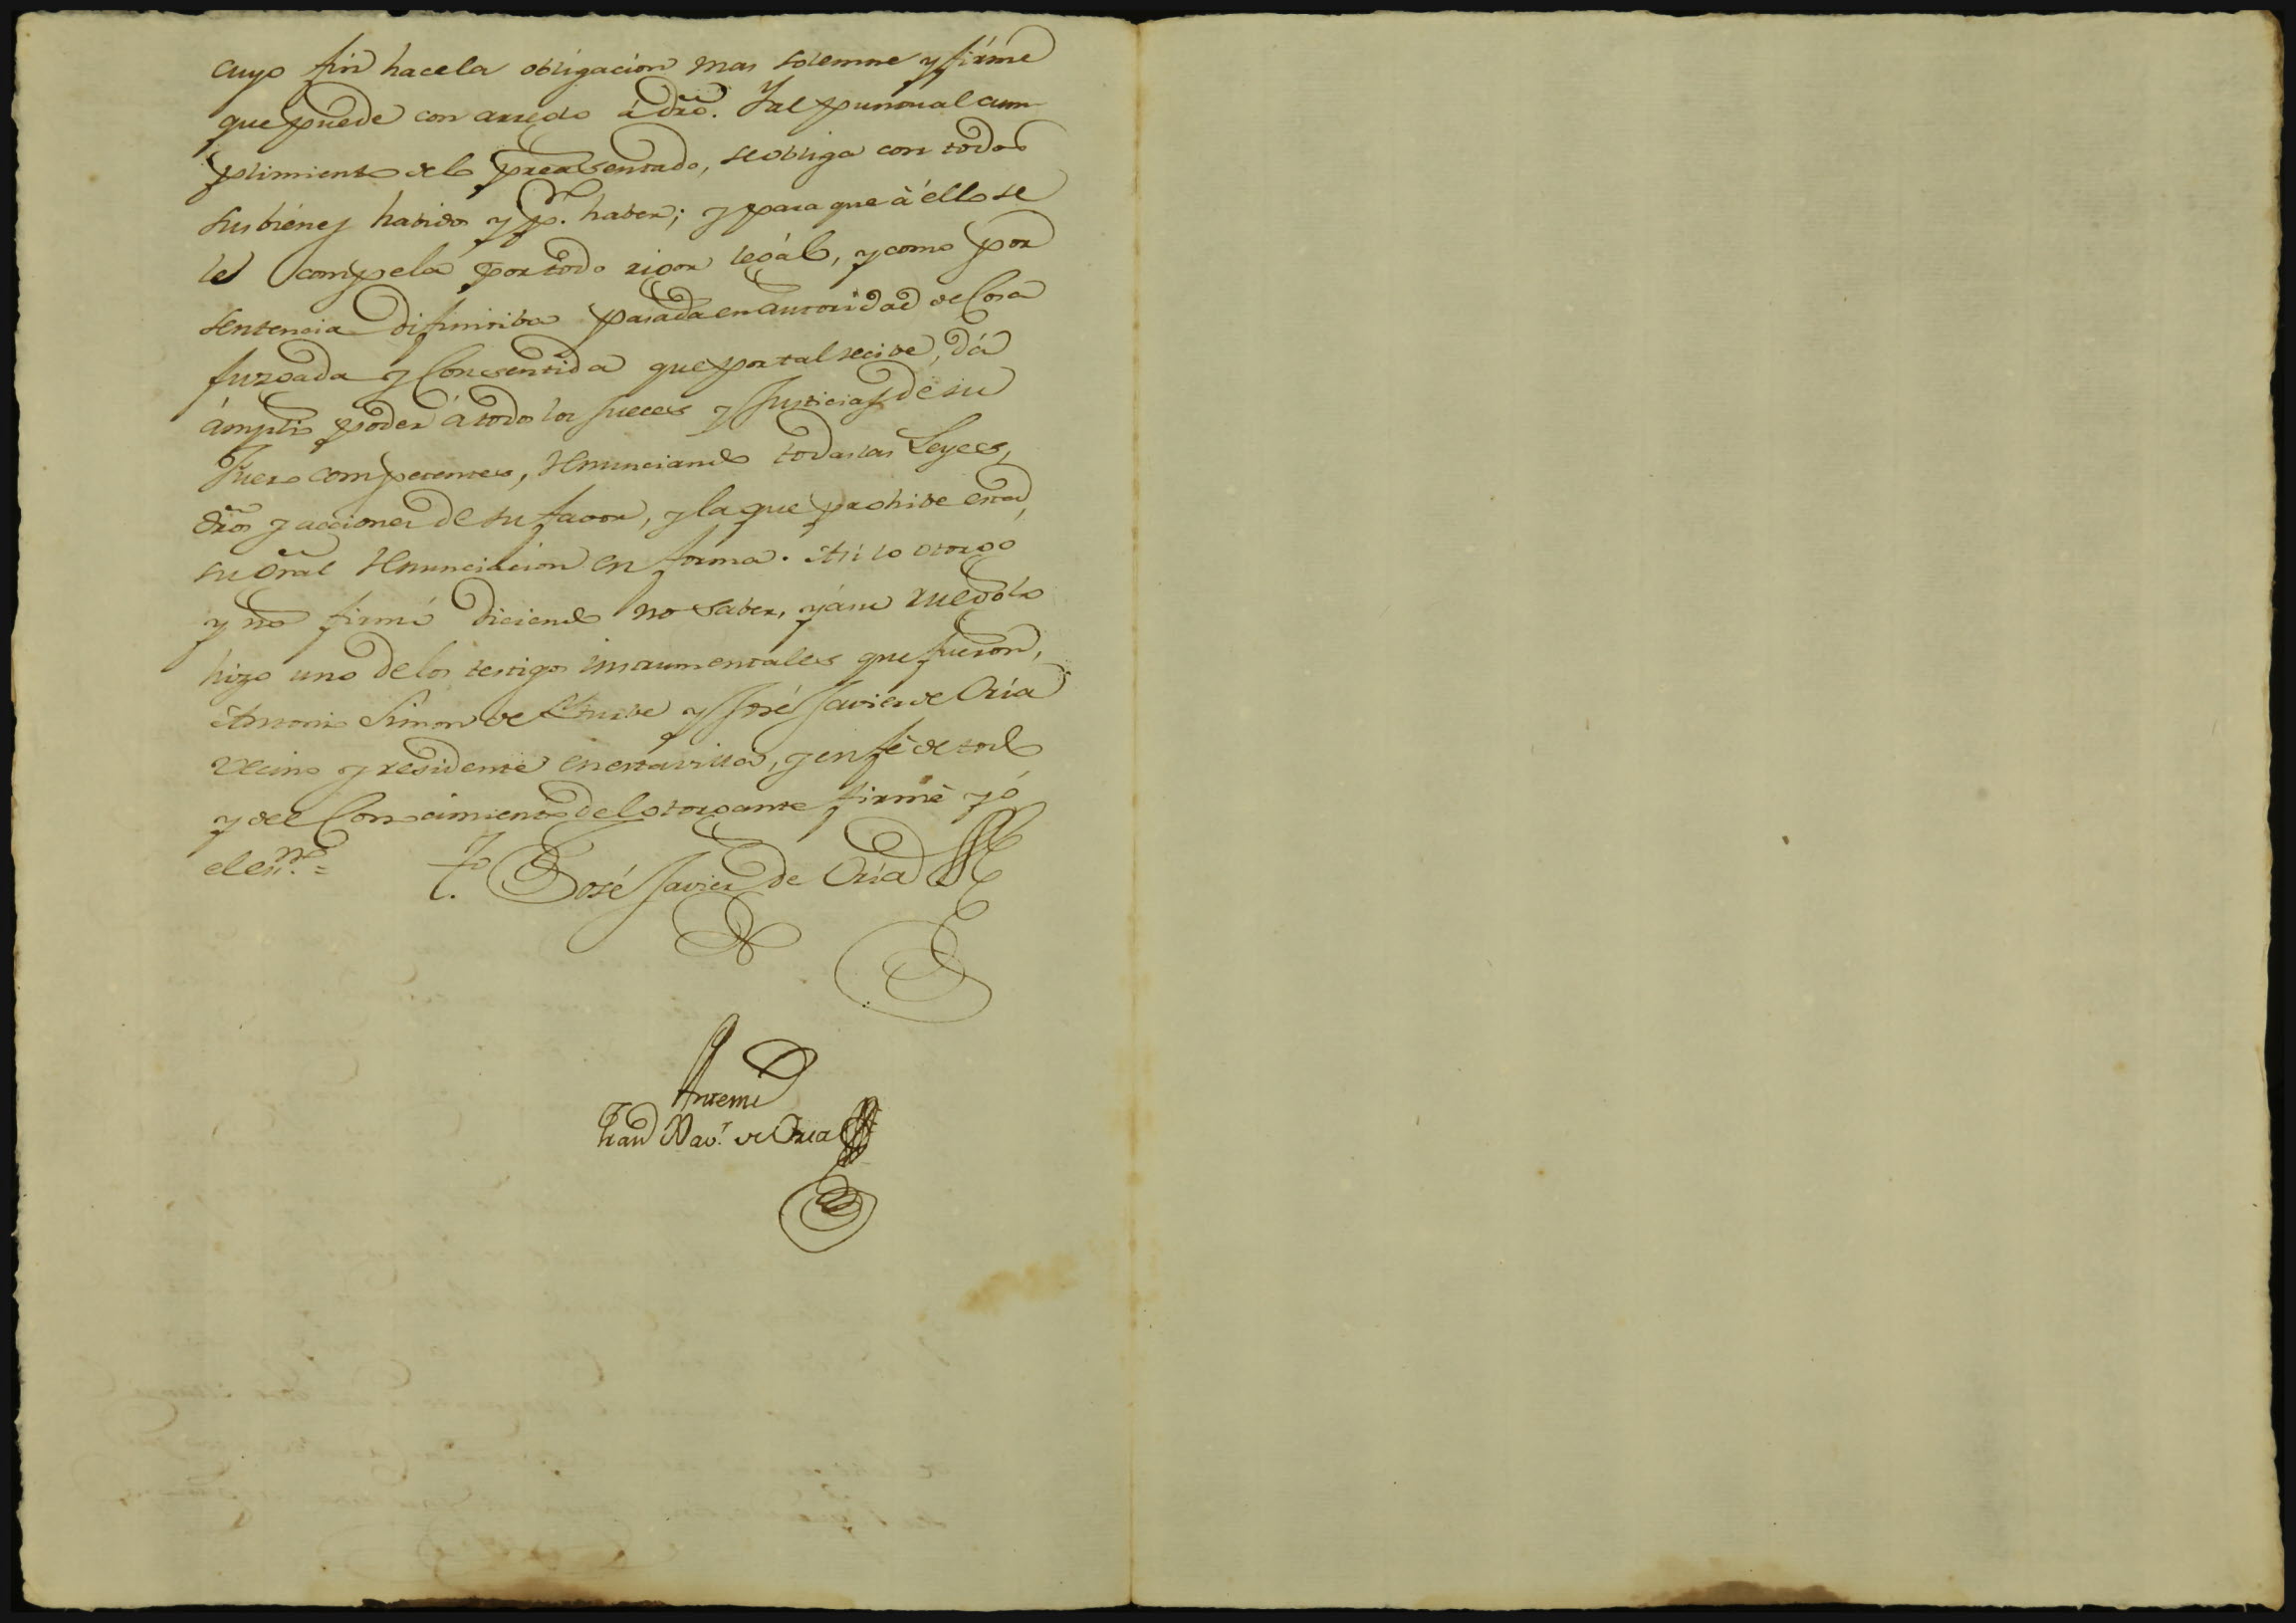 cuyo fin hace la obligacion mas solemne y firme
que puede con arreglo á dro. Y al puntual cum-
plimiento de lo prealsentado, se obliga con todos
sus bienes havidos y pr. haver; y para que à éllo se
le compela por todo rigor legál, y como por
sentencia difinitiba pasada en autoridad de Cosa
juzgada y Consentida que por tal recive, dá
ámplio poder á todos los Jueces y Justicias de su
Fuero competentes, renunciando todas las Leyes,
dros y acciones de su favor, y la que prohive esta,
su gral renunciacion en forma. Asi lo otorgó
y no firmó diciendo no saver, y á su ruego lo
hizo uno de los testigos instrumentales que fueron,
Antonio Simon de Yturbe y José Javier de Oria
vecino y residente en esta villa, y en fè de todo
y del Conocimiento del otorgante firmè yó
el essno. =
To. José Javier de Oria
Ante mi
Juan Navr. de Oria